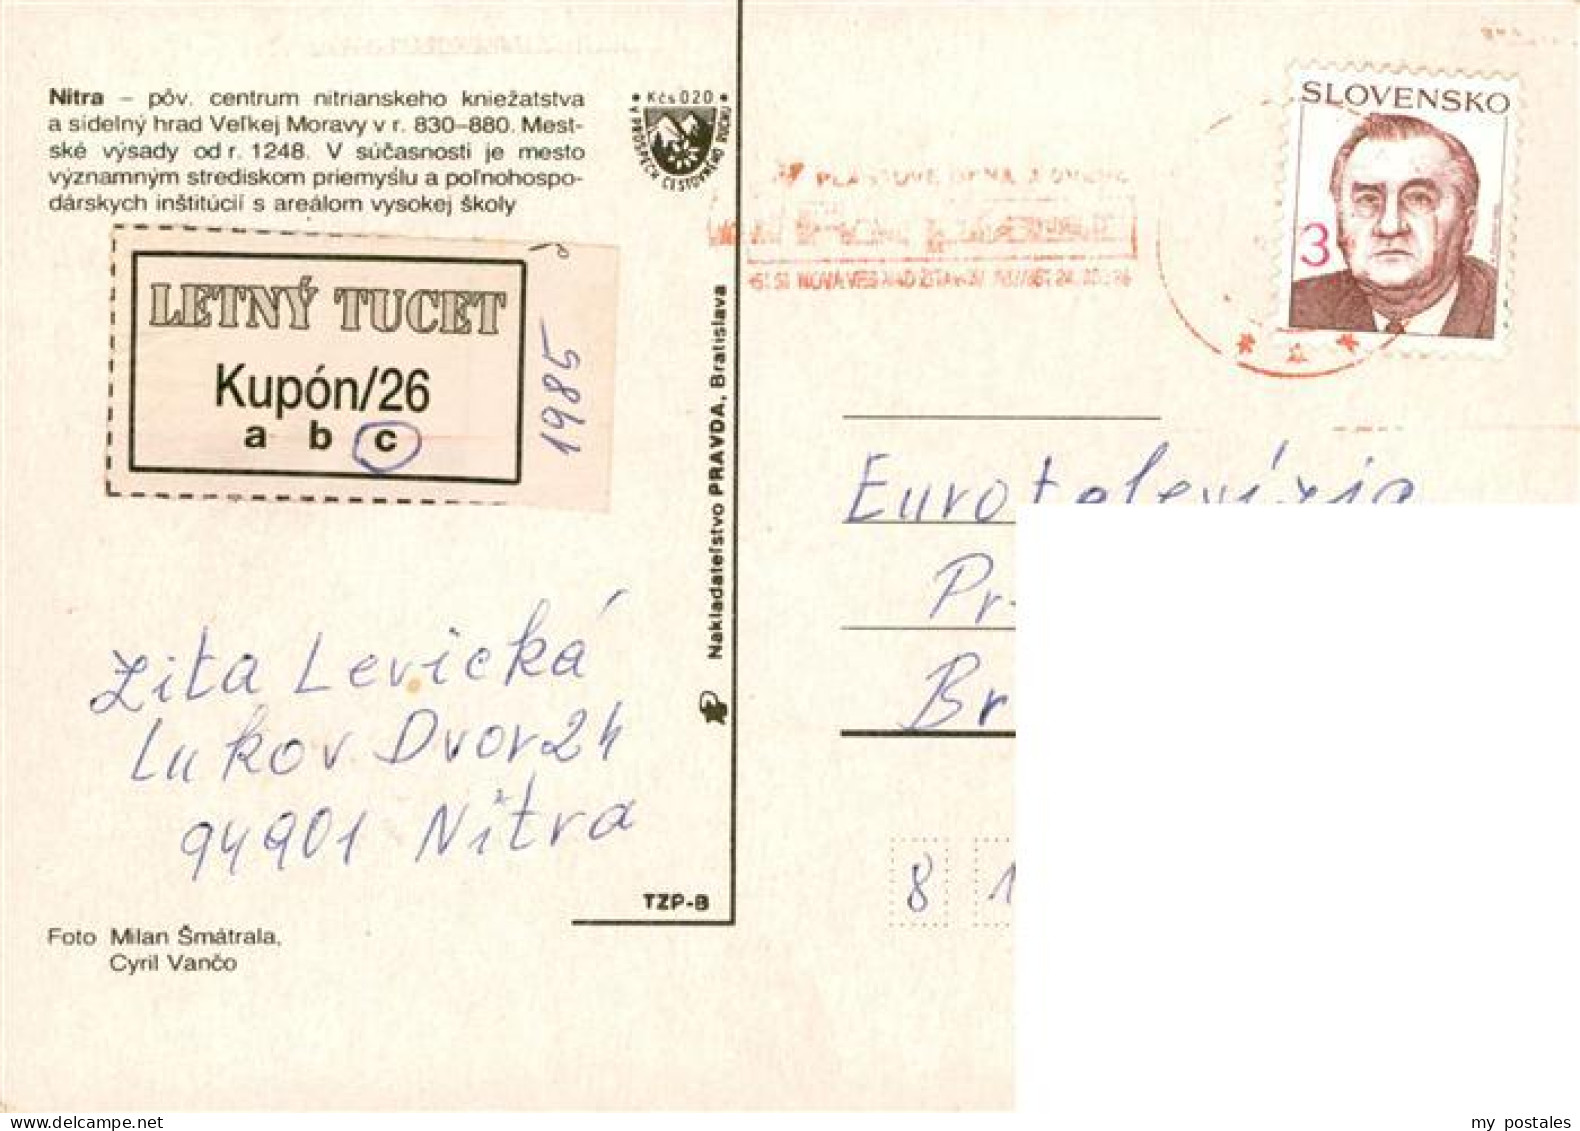 Nitra – pôv. centrum nitrianskeho kniežatstva
a sídelný hrad Veľkej Moravy v r. 830–880. Mest-
ské výsady od r. 1248. V súčasnosti je mesto
významným strediskom priemyslu a poľnohospo-
dárskych inštitúcií s areálom vysokej školy
• Kčs 020 •
V PROSPECH CESTOVNÉHO RUCHU
LETNÝ TUCET
Kupón/26
a b c
1985
Nakladateľstvo PRAVDA, Bratislava
Zita Levická
Lukov Dvor 24
94901 Nitra
TZP-B
Foto Milan Šmátrala,
Cyril Vančo
SLOVENSKO
3
NOVA VES NAD ŽITAVOU
Eurotelevízia
Pr
Br
8 1
my postales